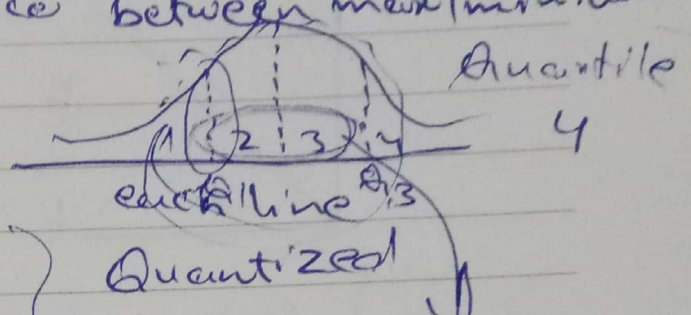 between
Quartile
1 2 3 4
4
each line Q3
Quantized